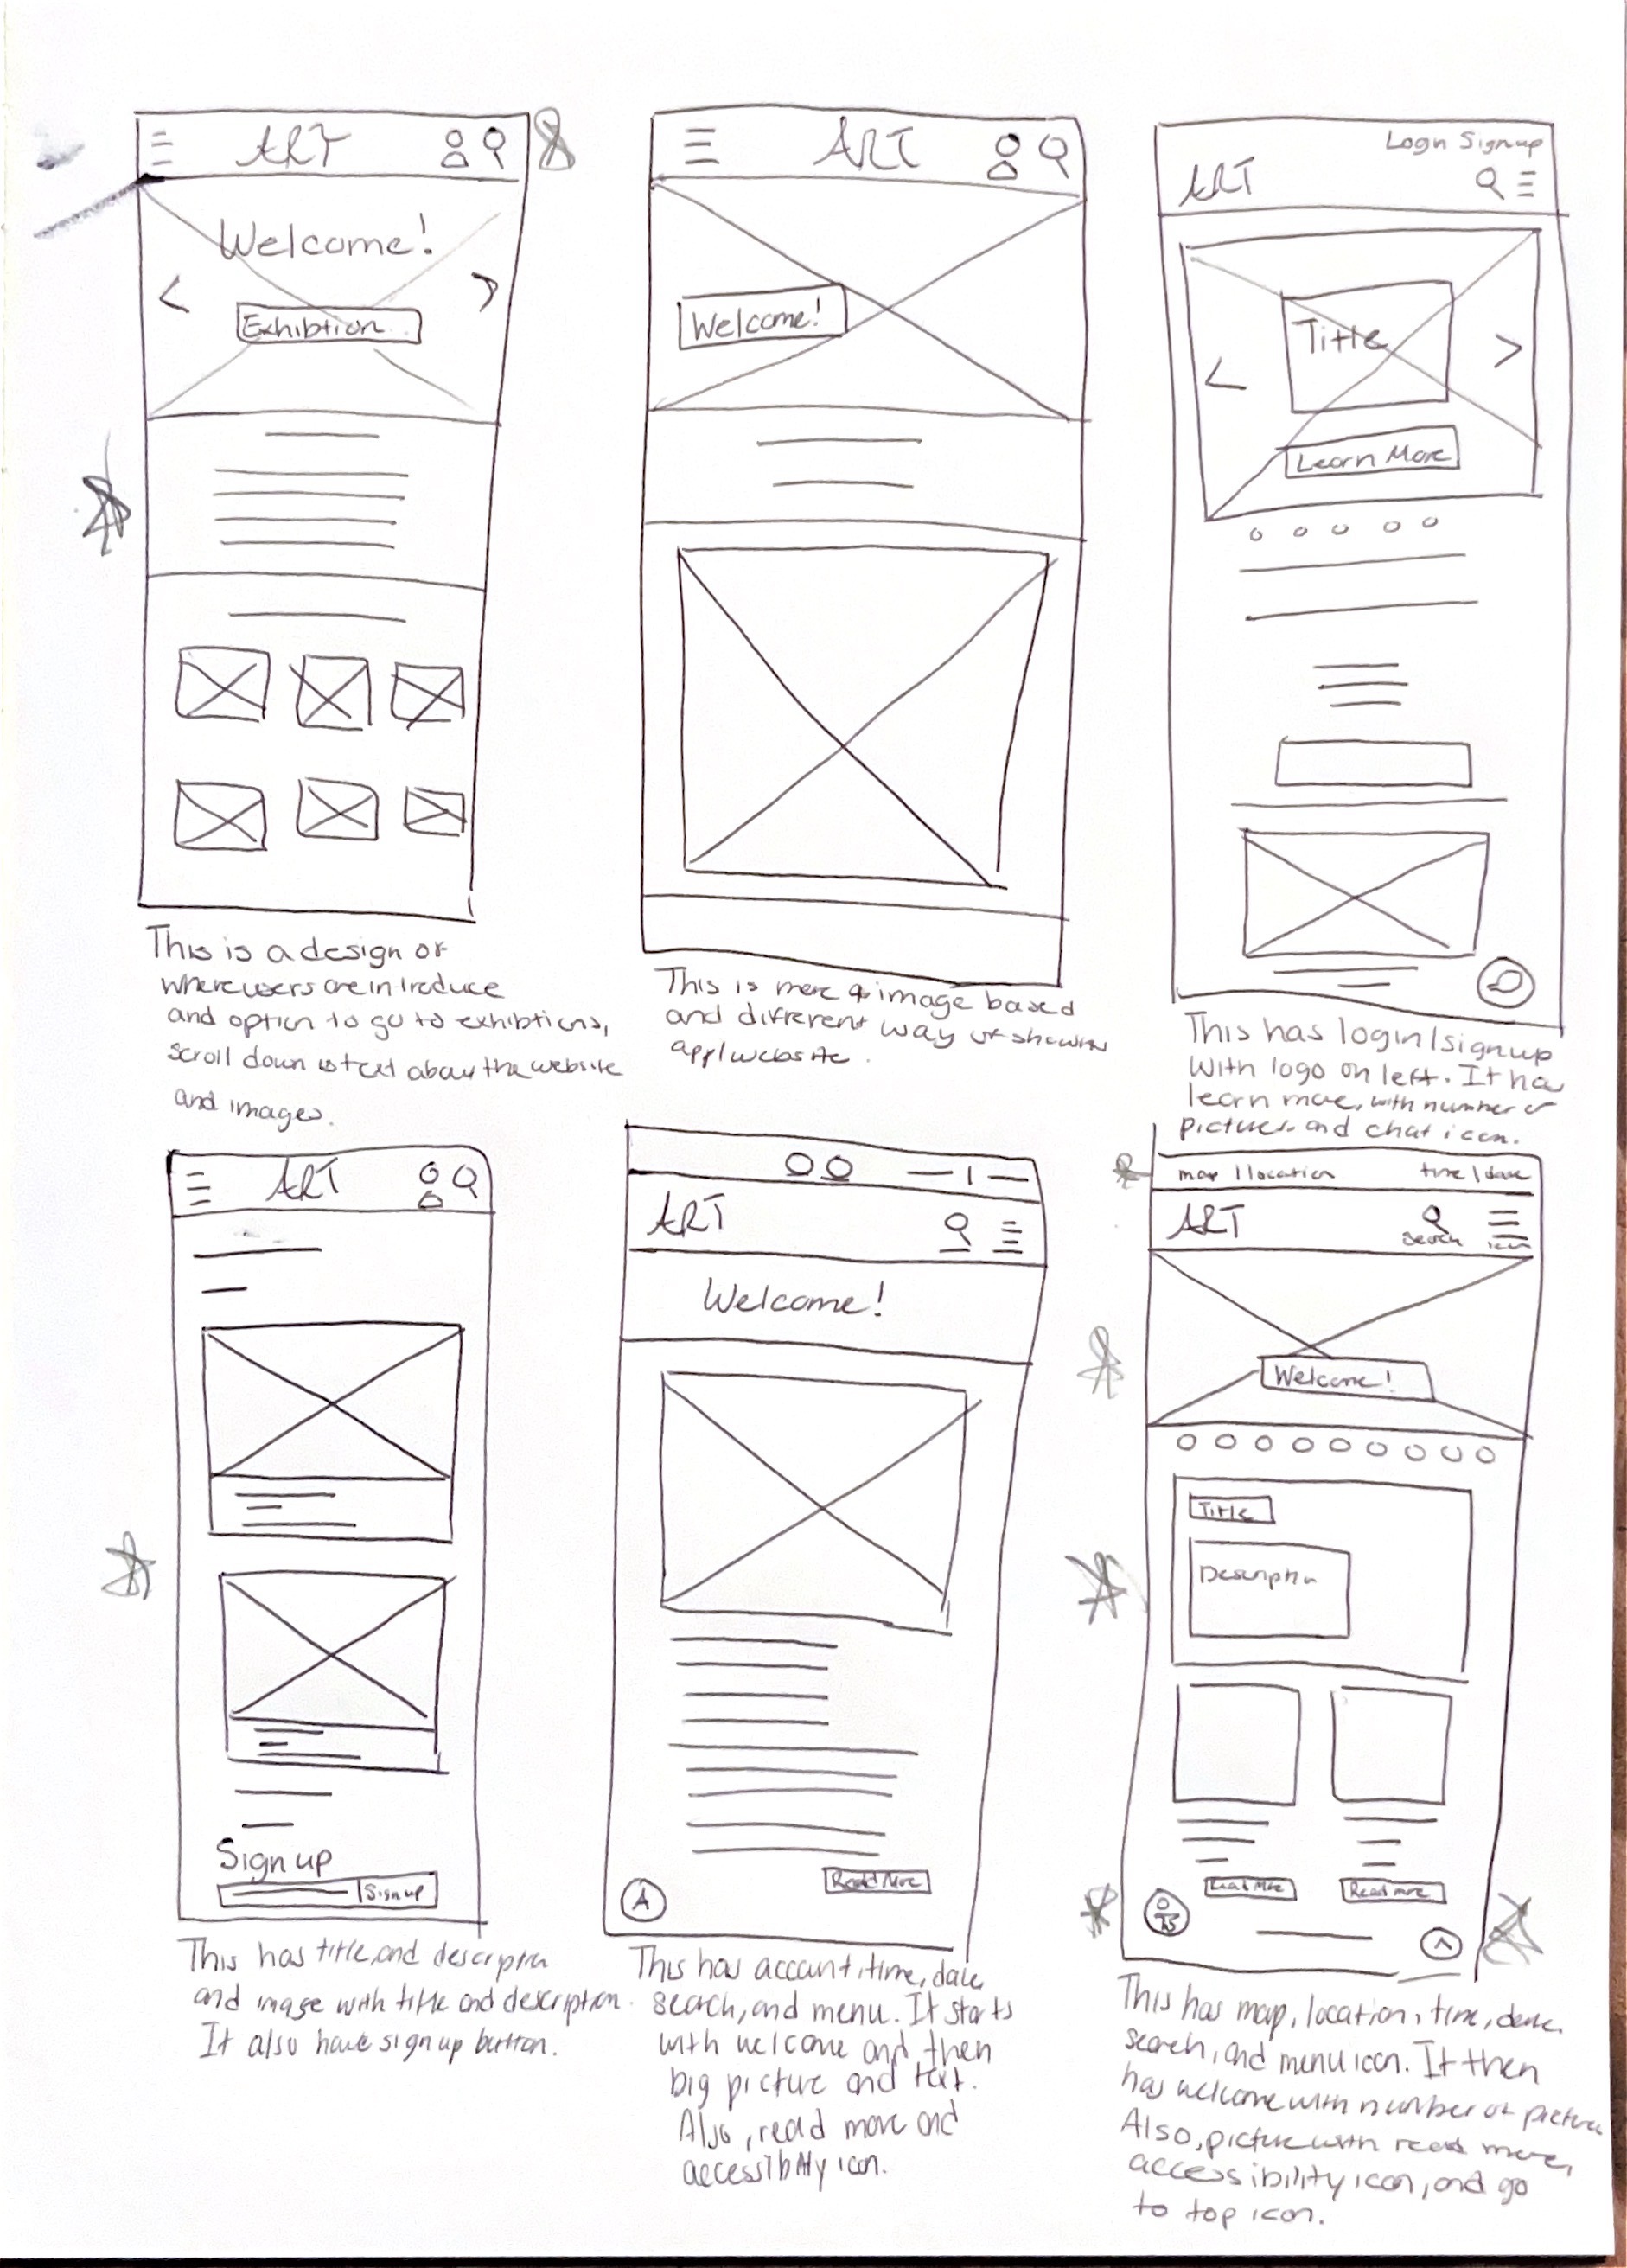 ART
Welcome!
<
>
Exhibtion
This is a design of
where users are introduce
and option to go to exhibtions,
scroll down is text about the website
and images.
ART
Welcome!
This is more image based
and different way of showin
app/website.
Login Signup
ART
Title
<
>
Learn More
This has login/signup
with logo on left. It has
learn more, with number of
pictures and chat icon.
ART
Sign up
Sign up
This has title and description
and image with title and description.
It also have sign up button.
ART
Welcome!
Read More
A
This has account, time, date,
search, and menu. It starts
with welcome and then
big picture and text.
Also, read more and
accessibility icon.
map / location time / date
ART
search icon
Welcome!
Title
Description
Read More Read more
This has map, location, time, date,
search, and menu icon. It then
has welcome with number of picture
Also, picture with read more,
accessibility icon, and go
to top icon.